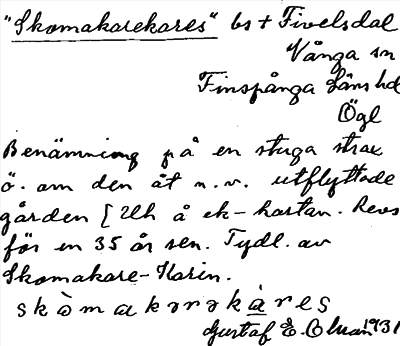 "Skomakarekares" bs + Fivelsdal
Vånga sn
Finspånga läns hd
Ögl
Benämning på en stuga strax
ö. om den åt n.v. utflyttade
gården [Uh å ek-kartan. Revs
för en 35 år sen. Tydl. av
Skomakare-Karin.
skòmakarəkàres
Gustaf E. Olsson 1931